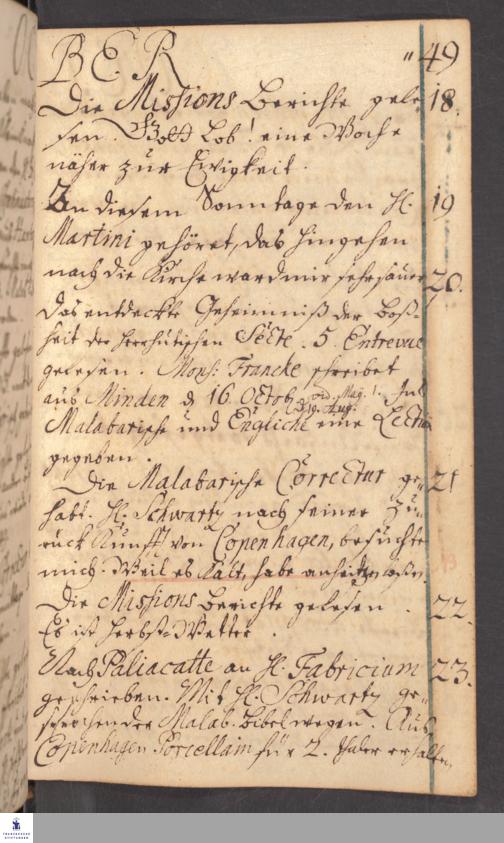 BER "49
Die Missions Berichte gele- 18.
sen. Gott Lob! eine Woche
näher zur Ewigkeit.
An diesem Sonntage den H. 19
Martini gehöret, das hingehen
nach die Kirche ward mir sehr sauer 20.
Das entdeckte Geheimniß der Boß-
heit der Herrhutischen Secte. 5. Entrevue
gelesen. Mons: Francke schreibet
aus Minden d 16. Octob.
19. Aug. Ins
Malabarische und Englische eine Lection
gegeben.
Die Malabarische Correctur ge- 21
habt. H: Schwartz nach seiner Zu-
rück Kunfft von Copenhagen, besuchte
mich. Weil es Kalt, habe anheitzen laßen. 13
Die Missions Berichte gelesen. 22.
Es ist Herbst-Wetter.
Nach Paliacatte an H. Fabricium 23.
geschrieben. Mit H. Schwartz ge-
sprochen der Malab. Bibel wegen. Aus
Copenhagen Porcellain für 2. Thaler erhalten
FRANCKESCHE STIFTUNGEN